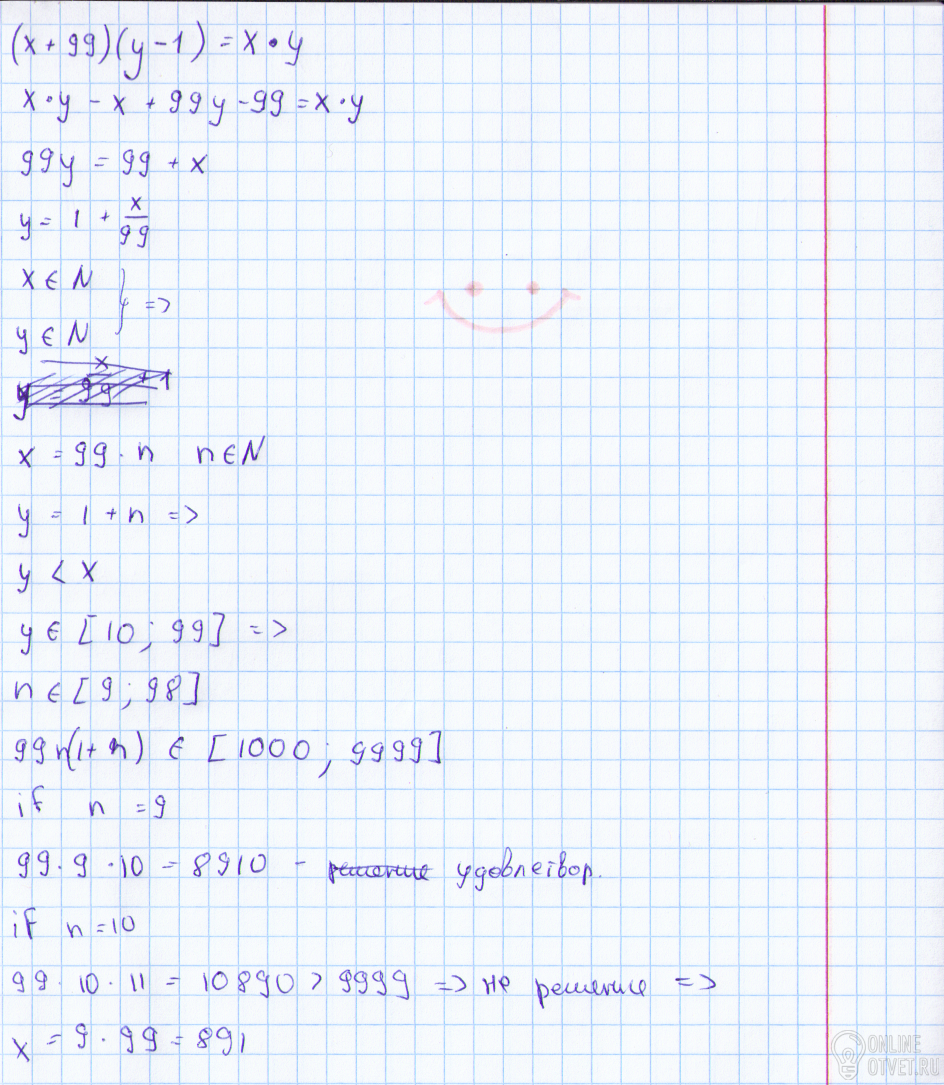 (x + 99)(y - 1) = x · y
x · y - x + 99y - 99 = x · y
99y = 99 + x
y = 1 + x/99
x ∈ N
y ∈ N } =>
y = x/99 + 1
x = 99 · n n ∈ N
y = 1 + n =>
y < x
y ∈ [10; 99] =>
n ∈ [9; 98]
99n(1 + n) ∈ [1000; 9999]
if n = 9
99 · 9 · 10 = 8910 - решение удовлетвор.
if n = 10
99 · 10 · 11 = 10890 > 9999 => не решение =>
x = 9 · 99 = 891
ONLINE
OTVET.RU